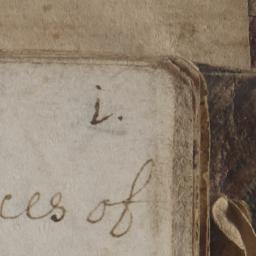 i.
ces of